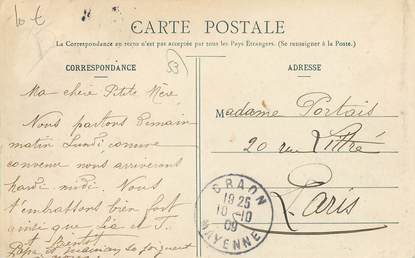 CARTE POSTALE
La Correspondance au recto n'est pas acceptée par tous les Pays Etrangers. (Se renseigner à la Poste.)
CORRESPONDANCE
53
Ma chère Petite Mère,
Nous partons demain
matin Lundi, comme
convenu nous arriverons
mardi midi. Nous
t'embrassons bien fort
ainsi que et
bientôt
se joignent
à nous
ADRESSE
Madame Portais
20 rue Littré
Paris
CRAON
19 25
10-10
09
MAYENNE